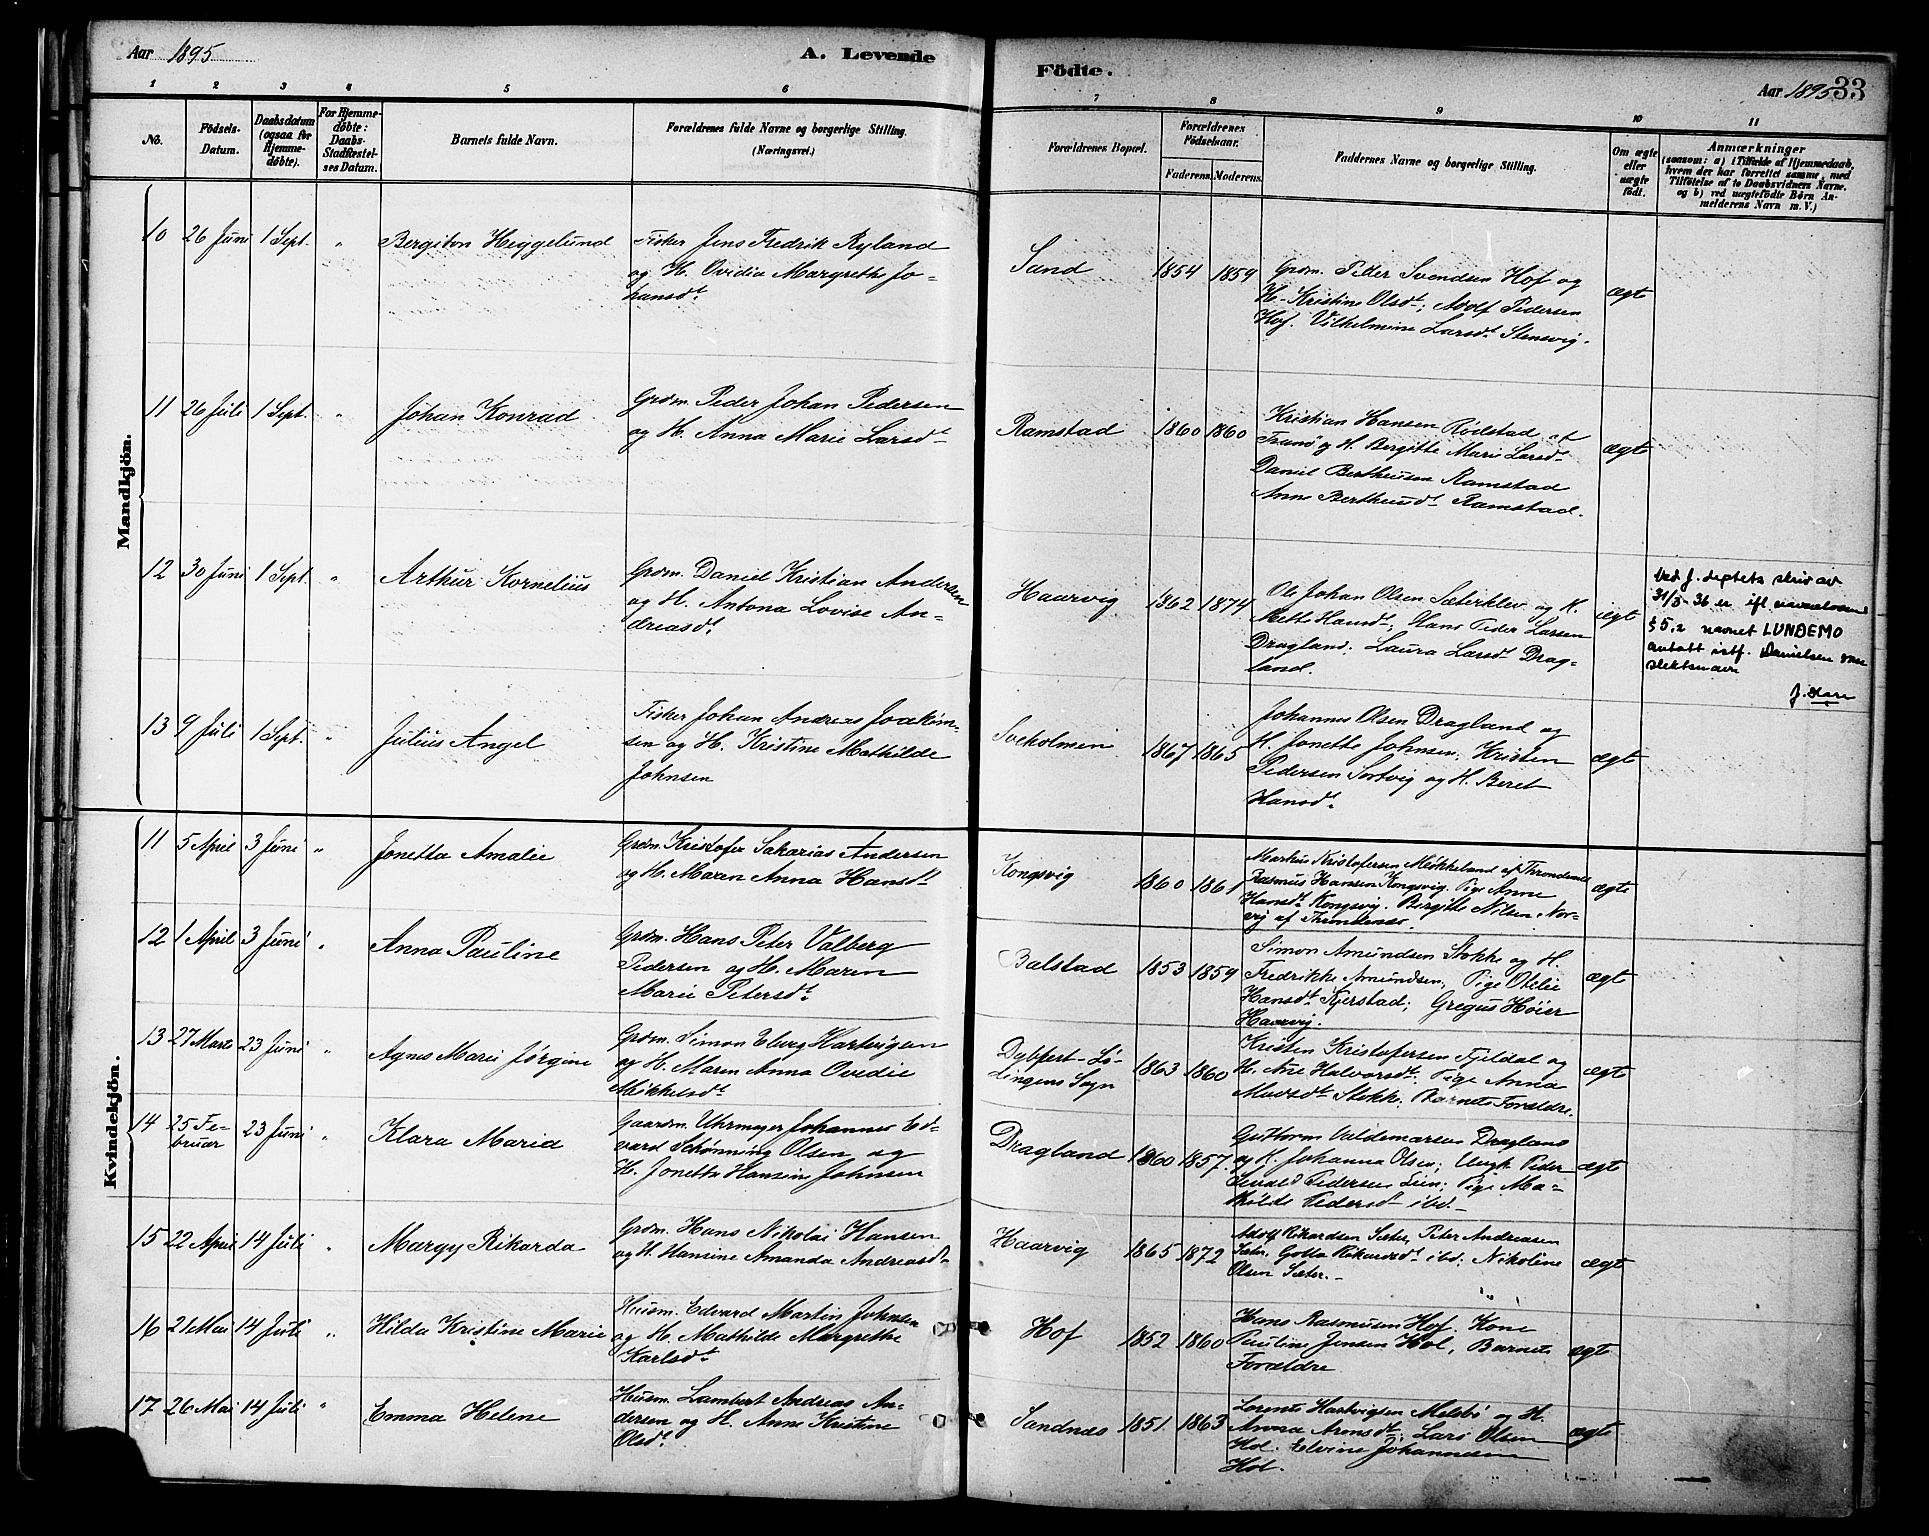 Aar 1895
A. Levende
Födte.
Aar 1895
33
1 2 3 4 5 6 7 8 9 10 11
No.
Födsels-
Datum.
Daabsdatum
(ogsaa for
Hjemme-
døbte).
For Hjemme-
døbte:
Daabs-
Stadfæstel-
ses Datum.
Barnets fulde Navn.
Forældrenes fulde Navne og borgerlige Stilling.
(Næringsvei.)
Forældrenes Bopæl.
Forældrenes
Födselsaar.
Faderens. Moderens.
Faddernes Navne og borgerlige Stilling.
Om ægte
eller
uægte
født.
Anmærkninger
(saasom: a) i Tilfælde af Hjemmedaab,
hvem der har forrettet samme, med
Tilföielse af to Daabsvidners Navne.
og b) ved uægtefödte Børn An-
melderens Navn m. V.)
Mandkjön.
10 26 Juni 1 Sept. " Bergiton Heggelund
Fisker Jens Fredrik Ryland
og H. Ovidia Margrethe Jo-
hansdt.
Sand 1854 1859
Grdm. Peder Svendsen Hof og
H. Kristine Olsdt; Adolf Pedersen
Hof. Vilhelmine Larsdt Stensvig.
ægte
11 26 Juli 1 Sept. " Johan Konrad
Grdm. Peder Johan Pedersen
og H. Anna Marie Larsdt
Ramstad 1860 1860
Kristian Hansen Rødstad af
Tranø og H. Bergitte Marie Larsdt
Daniel Bertheusen Ramstad
Anne Bertheusdt Ramstad.
ægte
12 30 Juni 1 Sept. " Arthur Kornelius
Grdm. Daniel Kristian Andersen
og H. Antona Lovise An-
dreasdt.
Haarvig 1862 1874
Ole Johan Olsen Sæterklev og K.
Mette Hansdt; Hans Peder Larsen
Dragland; Laura Larsdt Drag-
land.
ægte
Ved J. deptets skriv av
31/3-36 er ifl. navneloven
§5,2 navnet LUNDEMO
antatt istf. Danielsen som
slektsnavn
13 9 Juli 1 Sept. " Julius Angel
Fisker Johan Andreas Joakim-
sen og H. Kristine Mathilde
Johnsen
Sveholmen 1867 1865
Johannes Olsen Dragland og
H. Jonette Johnsen; Kristen
Pedersen Sortvig og H. Beret
Hansdt.
ægte
Kvindekjön.
11 5 April 3 Juni " Jonetta Amalie
Grdm. Kristofer Sakarias Andersen
og H. Maren Anna Hansdt
Kongsvig 1860 1861
Markus Kristofersen Møkkeland af Throndenæs
Rasmus Hansen Kongsvig. Pige Anne
Hansdt Kongsvig. Birgitte Nilsen Nor-
vig af Throndenæs.
ægte
12 1 April 3 Juni " Anna Pauline
Grdm. Hans Peter Valberg
Pedersen og H. Maren
Marie Petersdt.
Balstad 1853 1859
Simon Amundsen Stokke og H.
Fredrikke Amundsen; Pige Otelie
Hansdt Kjerstad; Gregus Høier
Haarvig.
ægte
13 27 Marts 23 Juni " Agnes Marie Jørgine
Grdm. Simon Eberg Hartvigsen
og H. Maren Anna Ovidie
Mikkelsdt.
Dybfest-Lø-
dingens Sogn 1863 1860
Kristen Kristofersen Fjeldal og
H. Ane Halvorsdt. Pige Anna
Stokke; Barnets Forældre.
ægte
14 25 Fe-
bruar 23 Juni " Klara Maria
Gaardm. Uhrmager Johannes Ed-
vard Schønning Olsen og
H. Jonetta Hansine Johnsen
Dragland 1860 1857.
Guttorm Valdemarsen Dragland
og K. Johanna Olsen; Ungk. Peder
Pedersen Lein; Pige Ma-
thilde Pedersdt ibd.
ægte
15 22 April 14 Juli " Margy Rikarda
Grdm. Hans Nikolai Hansen
og H. Hansine Amanda Andreasdt
Haarvig 1865 1872
Adolf Rikardsen Sæter, Peter Andreasen
Sæter. Golla Rikardsdt ibd; Nikoline
Olsen Sæter.
ægte
16 21 Mai 14 Juli " Hilda Kristine Marie
Husm. Edvard Martin Johnsen
og H. Mathilde Margrethe
Karlsdt.
Hof 1852 1860
Hans Rasmusen Hof. Kone
Pauline Jensen Hol, Barnets
Forældre
ægte
17 26 Mai 14 Juli " Emma Helene
Husm. Lambert Andreas An-
dersen og H. Anne Kristine
Olsdt.
Sandnæs 1851. 1863
Lorents Hartvigsen Melsbø og H.
Anna Arensdt; Lars Olsen
Hol. Elvine Johannesen
Hol.
ægte